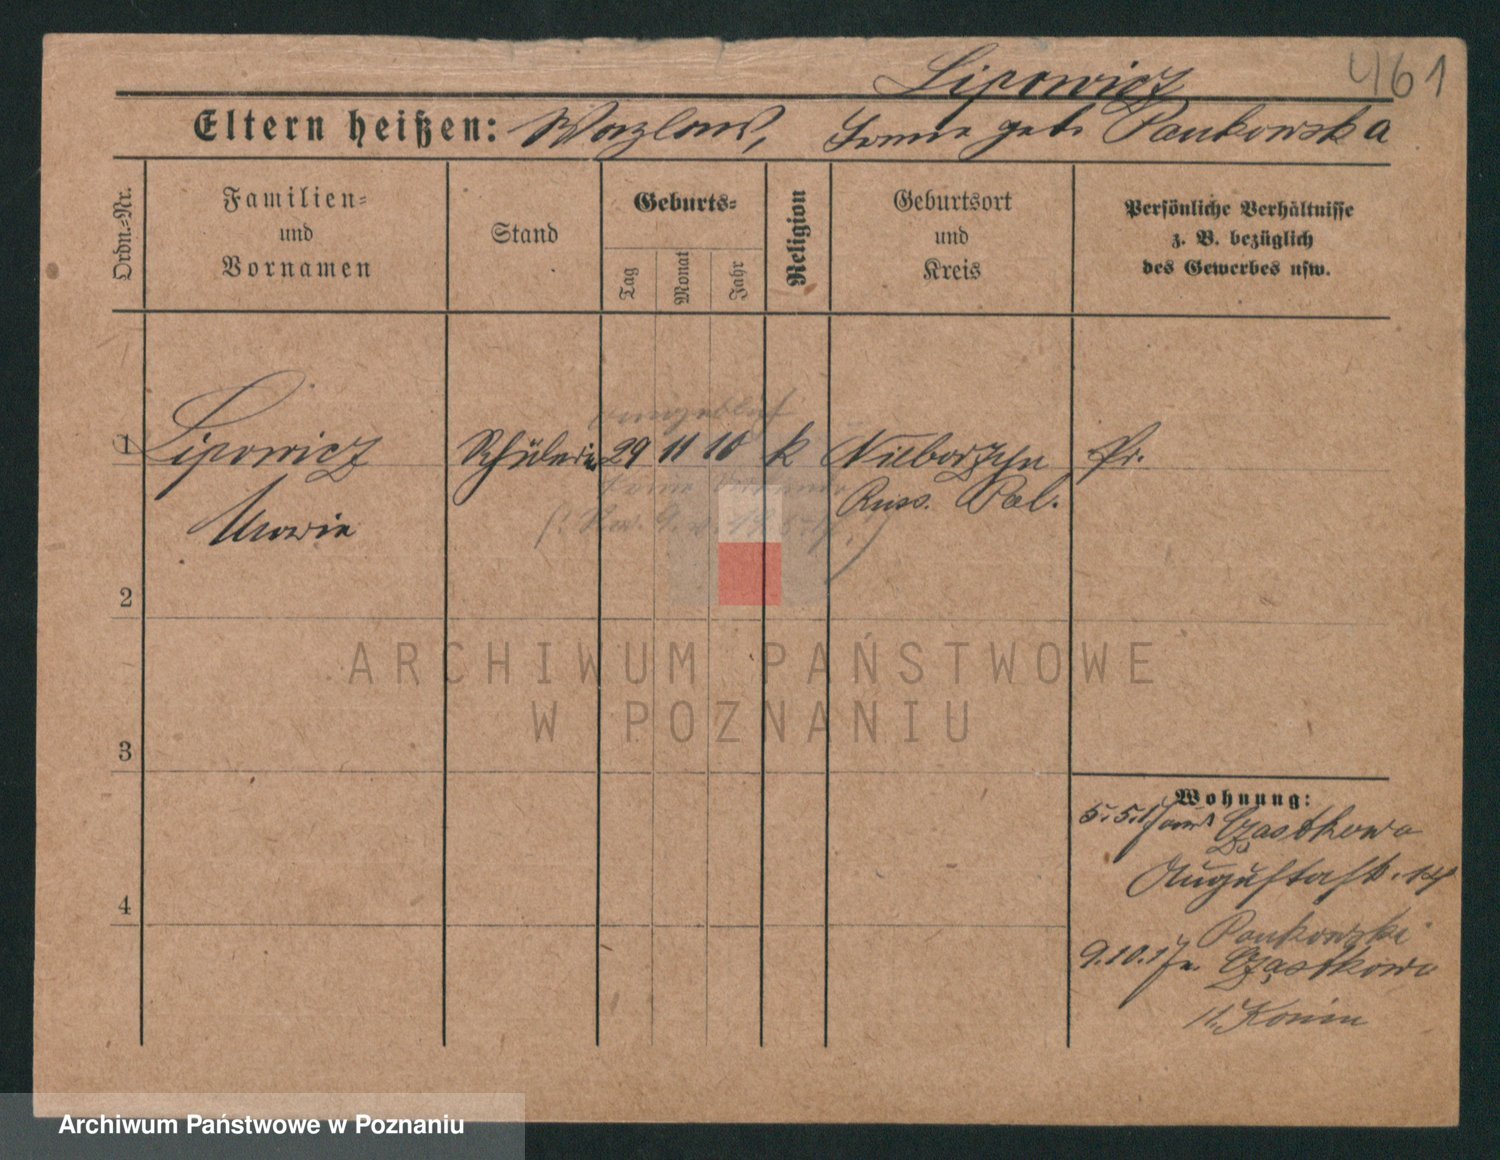 461
Lipowicz
Eltern heißen: Wazlaw, geb. Pankowska
Ordn.-Nr.
Familien-
und
Vornamen
Stand
Geburts-
Tag
Monat
Jahr
Religion
Geburtsort
und
Kreis
Persönliche Verhältnisse
z. B. bezüglich
des Gewerbes usw.
1 Lipowicz Schülerin 29 11 10 k Pr.
Russ. Pol.
2
ARCHIWUM PAŃSTWOWE
W POZNANIU
3
4
Wohnung:
5.5.17 Czastkowo
Augustastr. 14
Pankowski
9.10.17 n. Czastkowo
Konin
Archiwum Państwowe w Poznaniu